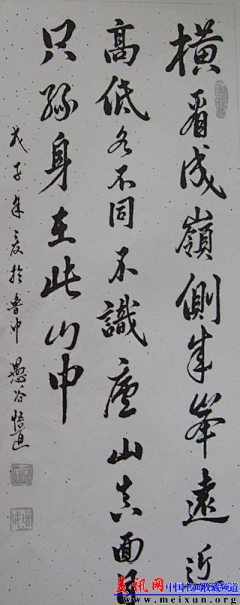 橫看成嶺側成峯遠近
高低各不同不識廬山真面目
只緣身在此山中
戊子年夏於魯中 愚谷悟道
美讯网 中国书画收藏频道
www.meixun.org